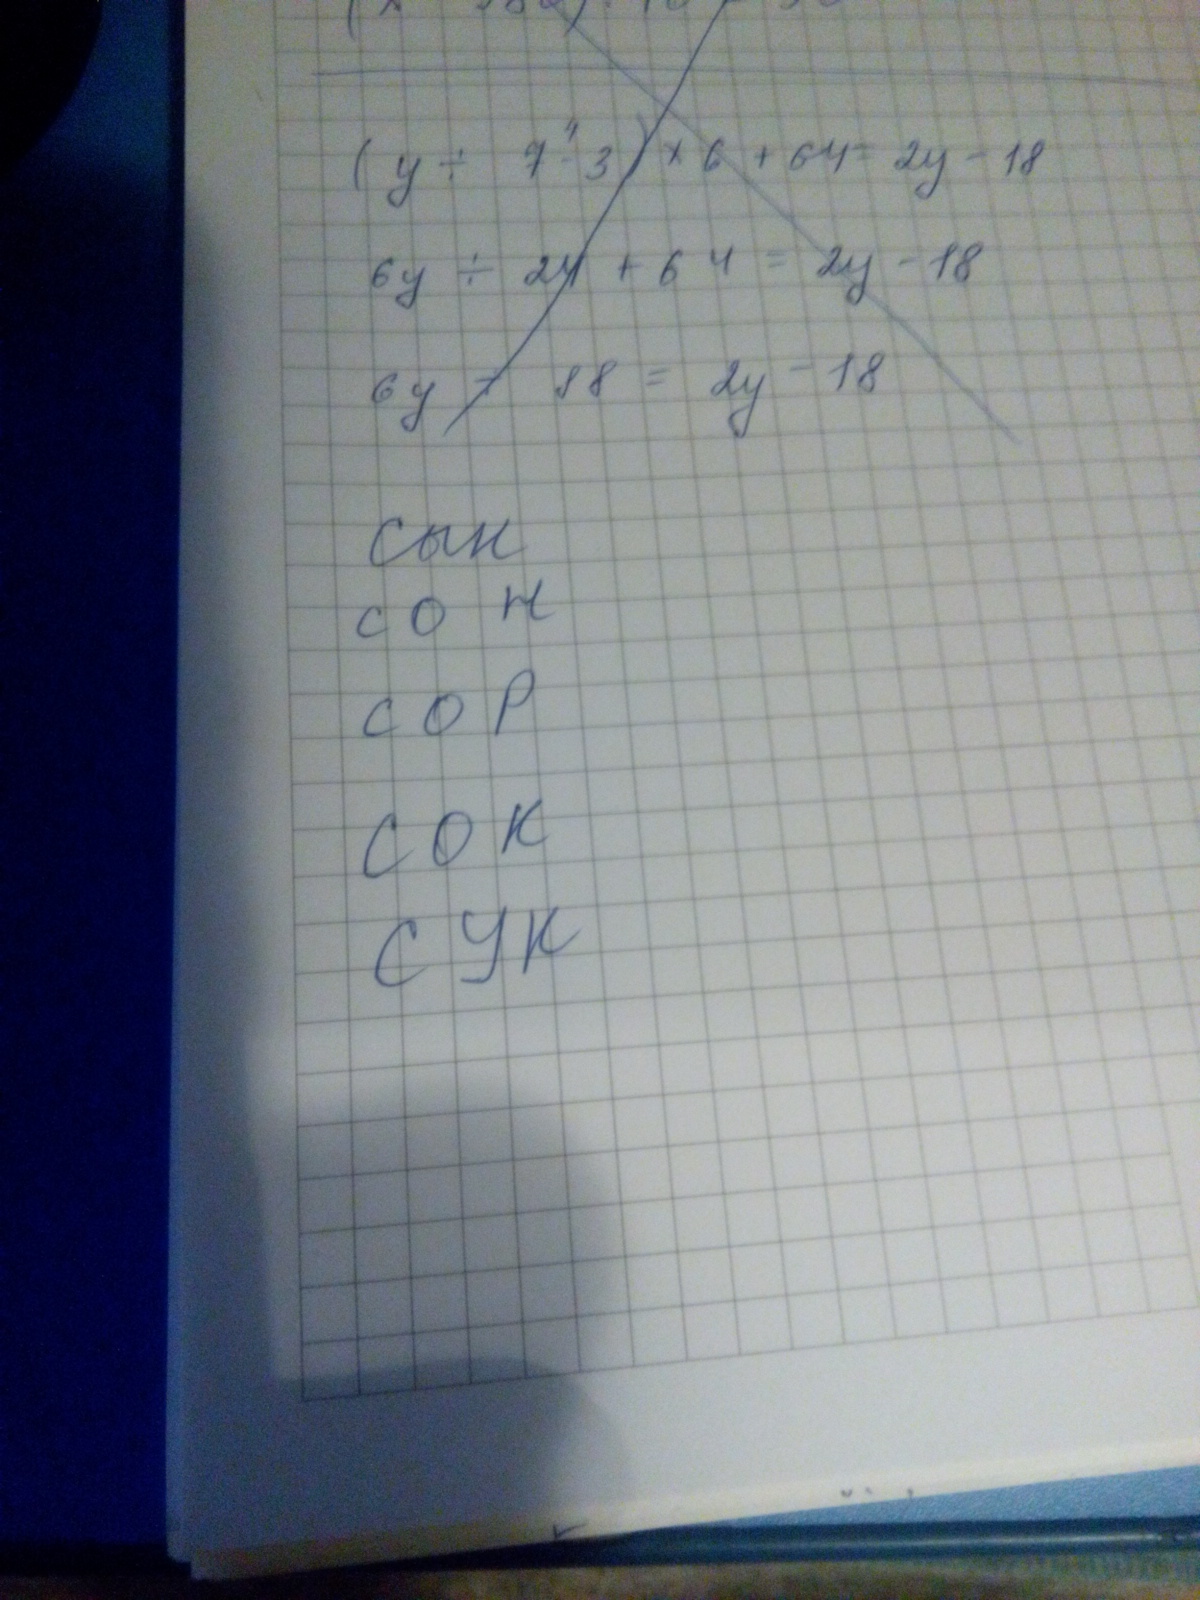 (y ÷ 7 - 3) × 6 + 64 = 2y - 18
6y ÷ 24 + 64 = 2y - 18
6y ÷ 88 = 2y - 18
сын
сон
СОР
СОК
СУК